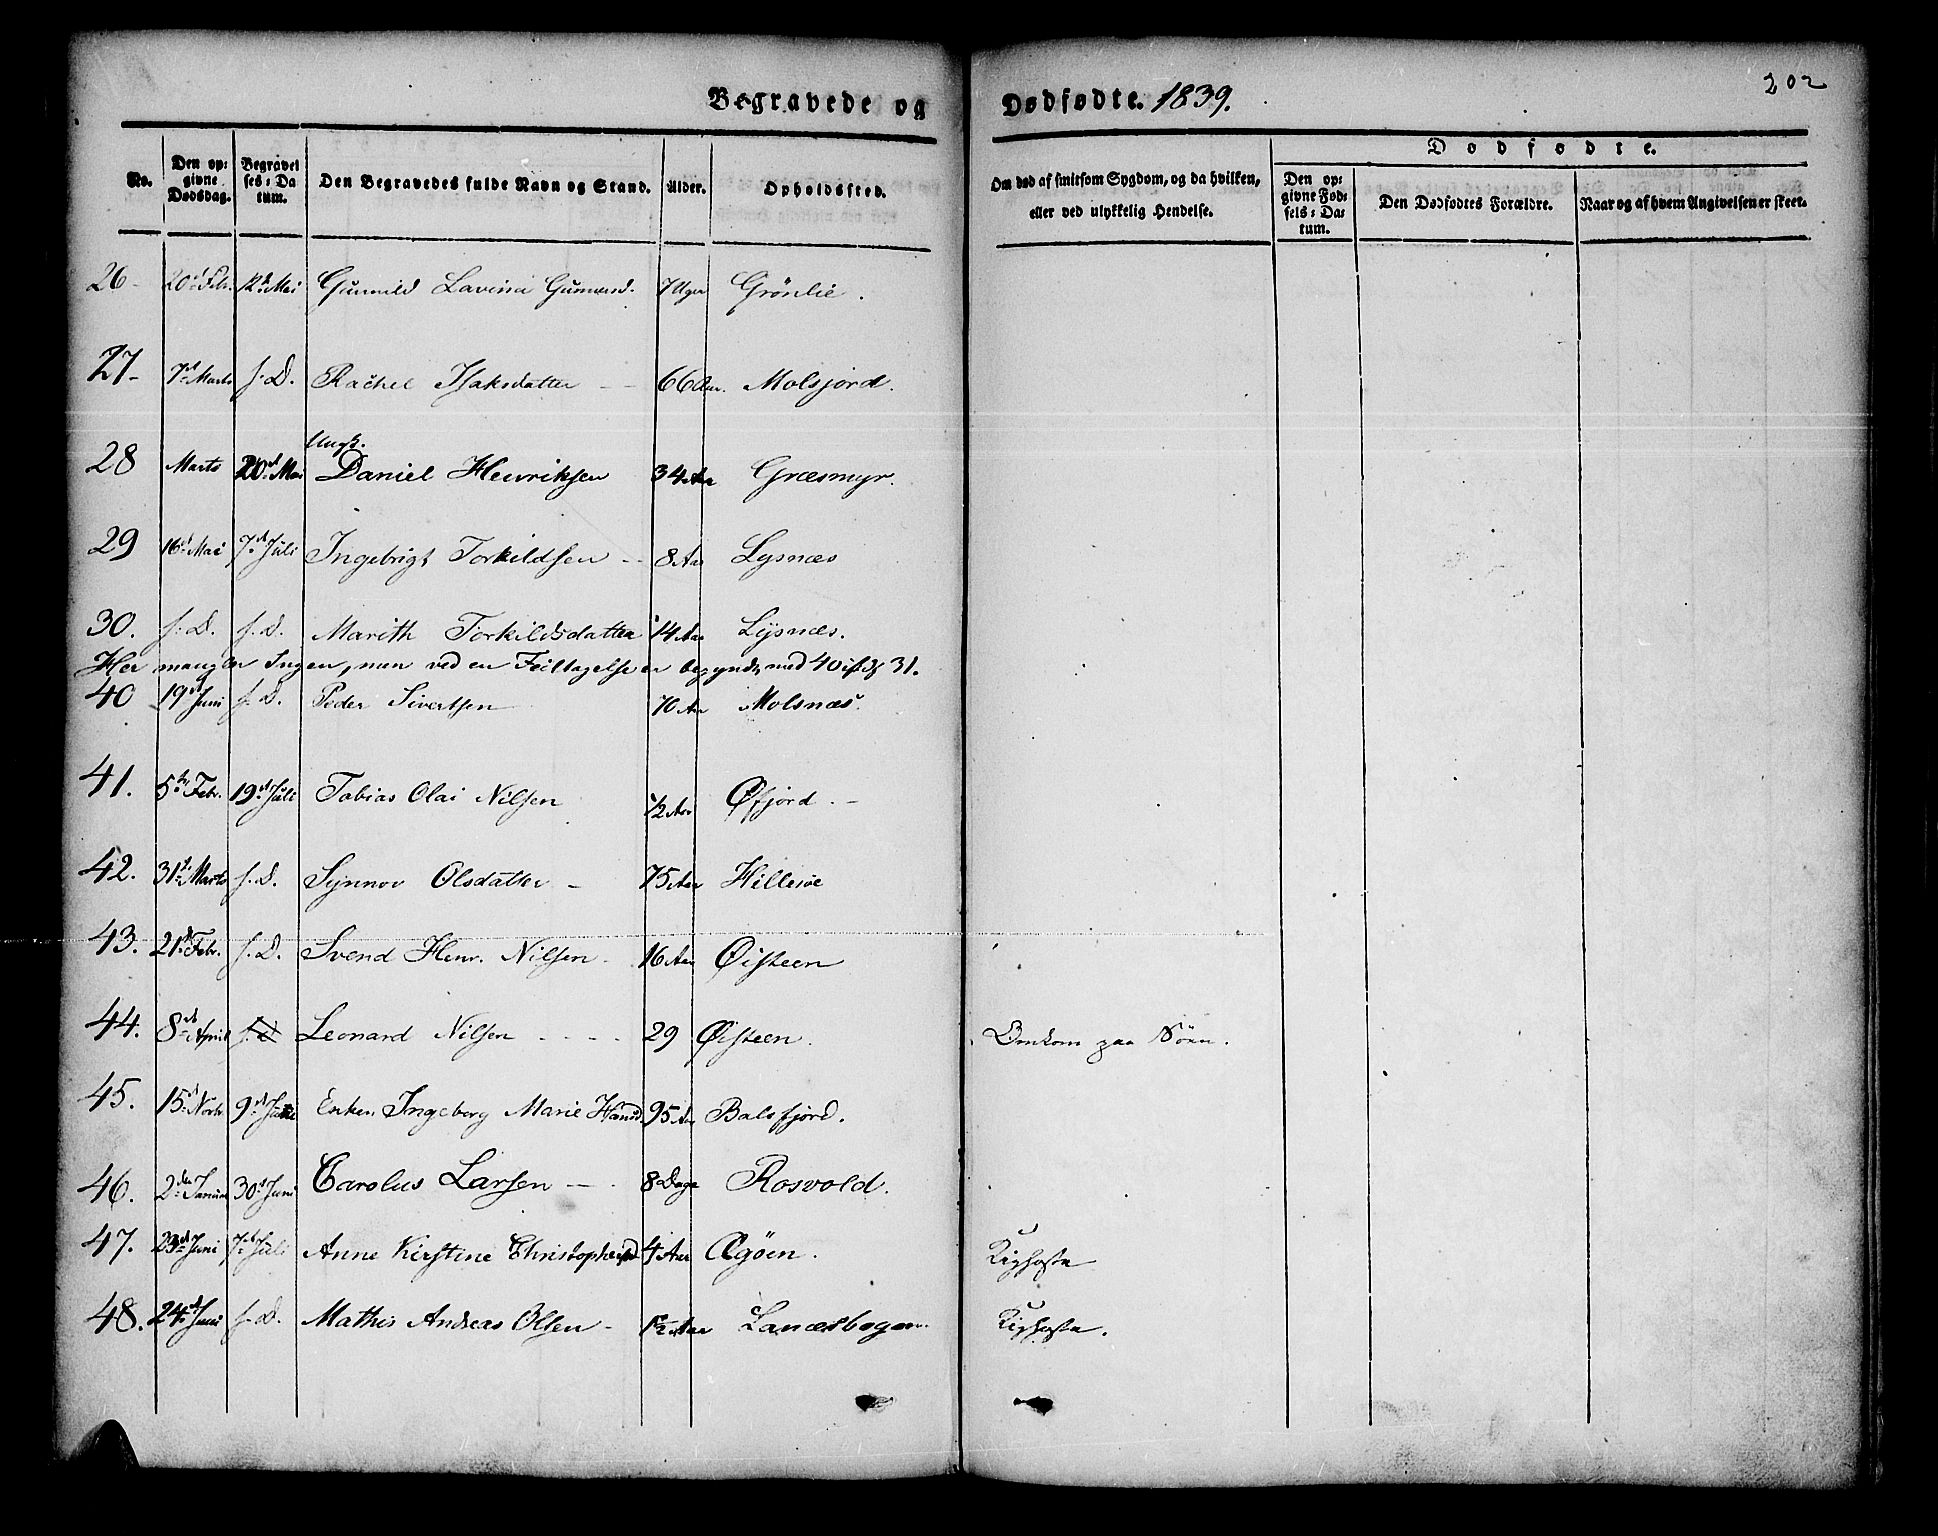 Begravede og Dødfødte. 1839.
202
No. | Den opgivne Dødsdag. | Begravelses-Datum. | Den Begravedes fulde Navn og Stand. | Alder. | Opholdssted. | Om død af smitsom Sygdom, og da hvilken, eller ved ulykkelig Hendelse. | Dødfødte. | Den opgivne Fødsels-Datum. | Den Dødfødtes Forældre. | Naar og af hvem Angivelsen er skeet.
26 - 20d Febr. 12d Mai Gunnild Lavina Gunnersd. 7 Uger Grönlie.
27 - 7d Marts s. D. Rachel Isaksdatter - - 66 Aar. Malsjord.
Ungk.
28 Marts 20d Mai Daniel Henriksen 34 Aar Græsmyr.
29 16d Mai 7d Juli Ingebrigt Torkildsen - - 8 Aar Lysnæs
30. s. D. s. D. Marith Torkildsdatter 14 Aar Lysnæs.
Her mangler Ingen, men ved en Feiltagelse er begyndt med 40 istdf 31.
40 19d Juni s. D. Peder Sivertsen 70 Aar Molsnæs.
41. 5te Febr. 19d Juli Tobias Olai Nilsen 1/2 Aar Øfjord. -
42. 31te Marts s. D. Synnov Olsdatter - 75 Aar Hillesöe
43. 21d Febr. s. D. Svend Henr. Nilsen - 16 Aar Øisteen
44. 8d April s. D. Leonard Nilsen - - - - 29 Øisteen. Omkom paa Söen.
45. 15d Novbr 9d Juli Enken Ingeborg Marie Hansd. 95 Aar Balsfjord.
46. 2den Januar 30d Juni Carolus Larsen - - 8 Dage Rosvold.
47. 23d Juni 7d Juli Anne Kirstine Christophersd 4 Aar Øegöen. Kighoste
48. 24d Juni s. D. Mathis Andreas Olsen - 1 1/2 Aar Lanæsbogen. Kighoste.